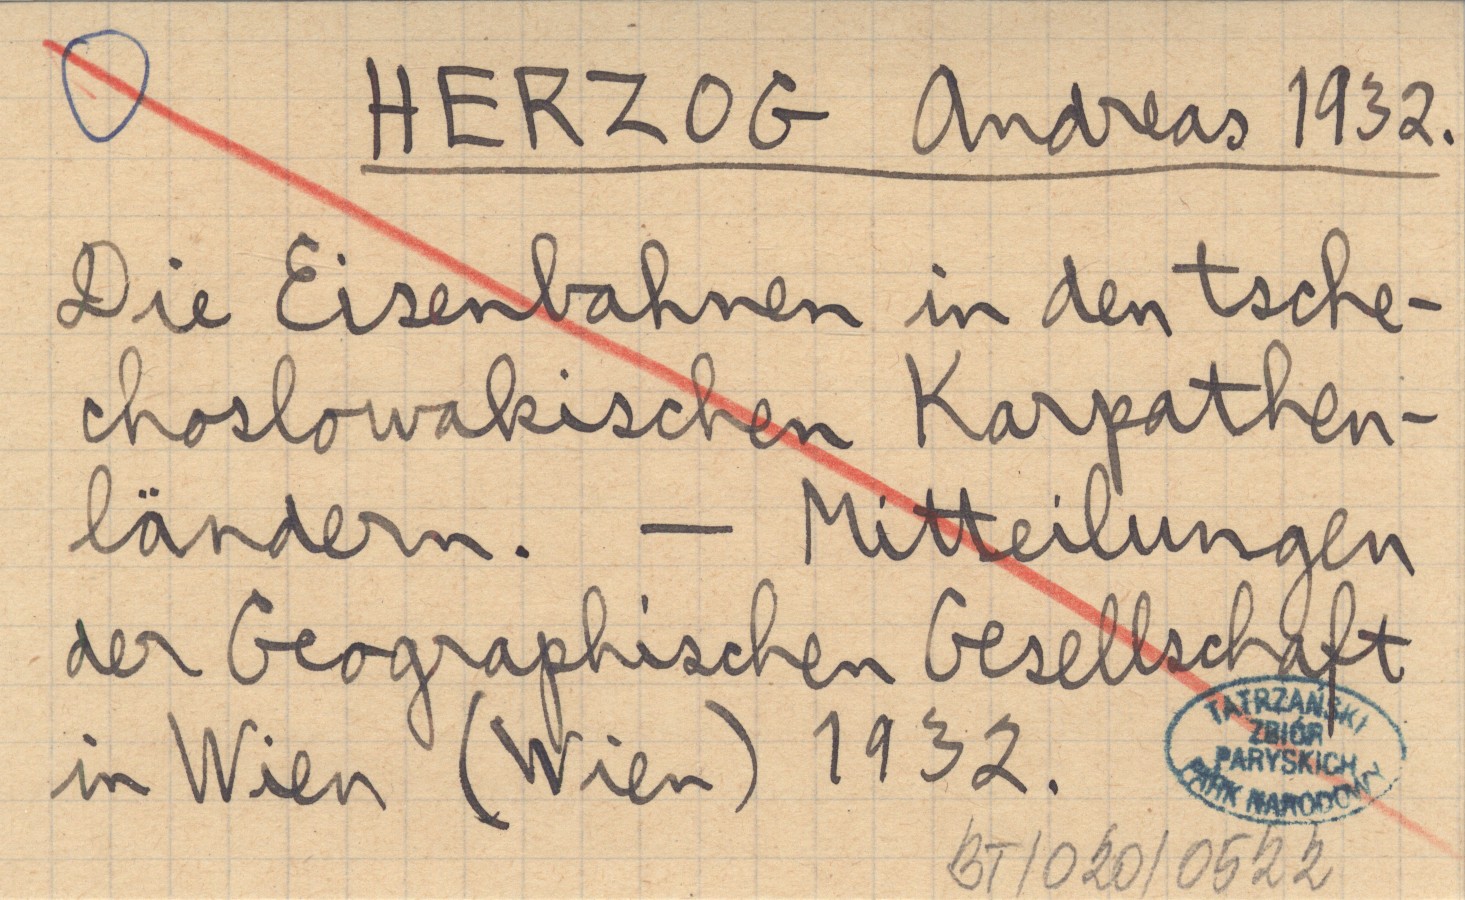 HERZOG Andreas 1932.
Die Eisenbahnen in den tsche-
choslowakischen Karpathen-
ländern. — Mitteilungen
der Geographischen Gesellschaft
in Wien (Wien) 1932.
TATRZAŃSKI
ZBIÓR
PARYSKICH
PARK NARODOWY
BT/020/0522